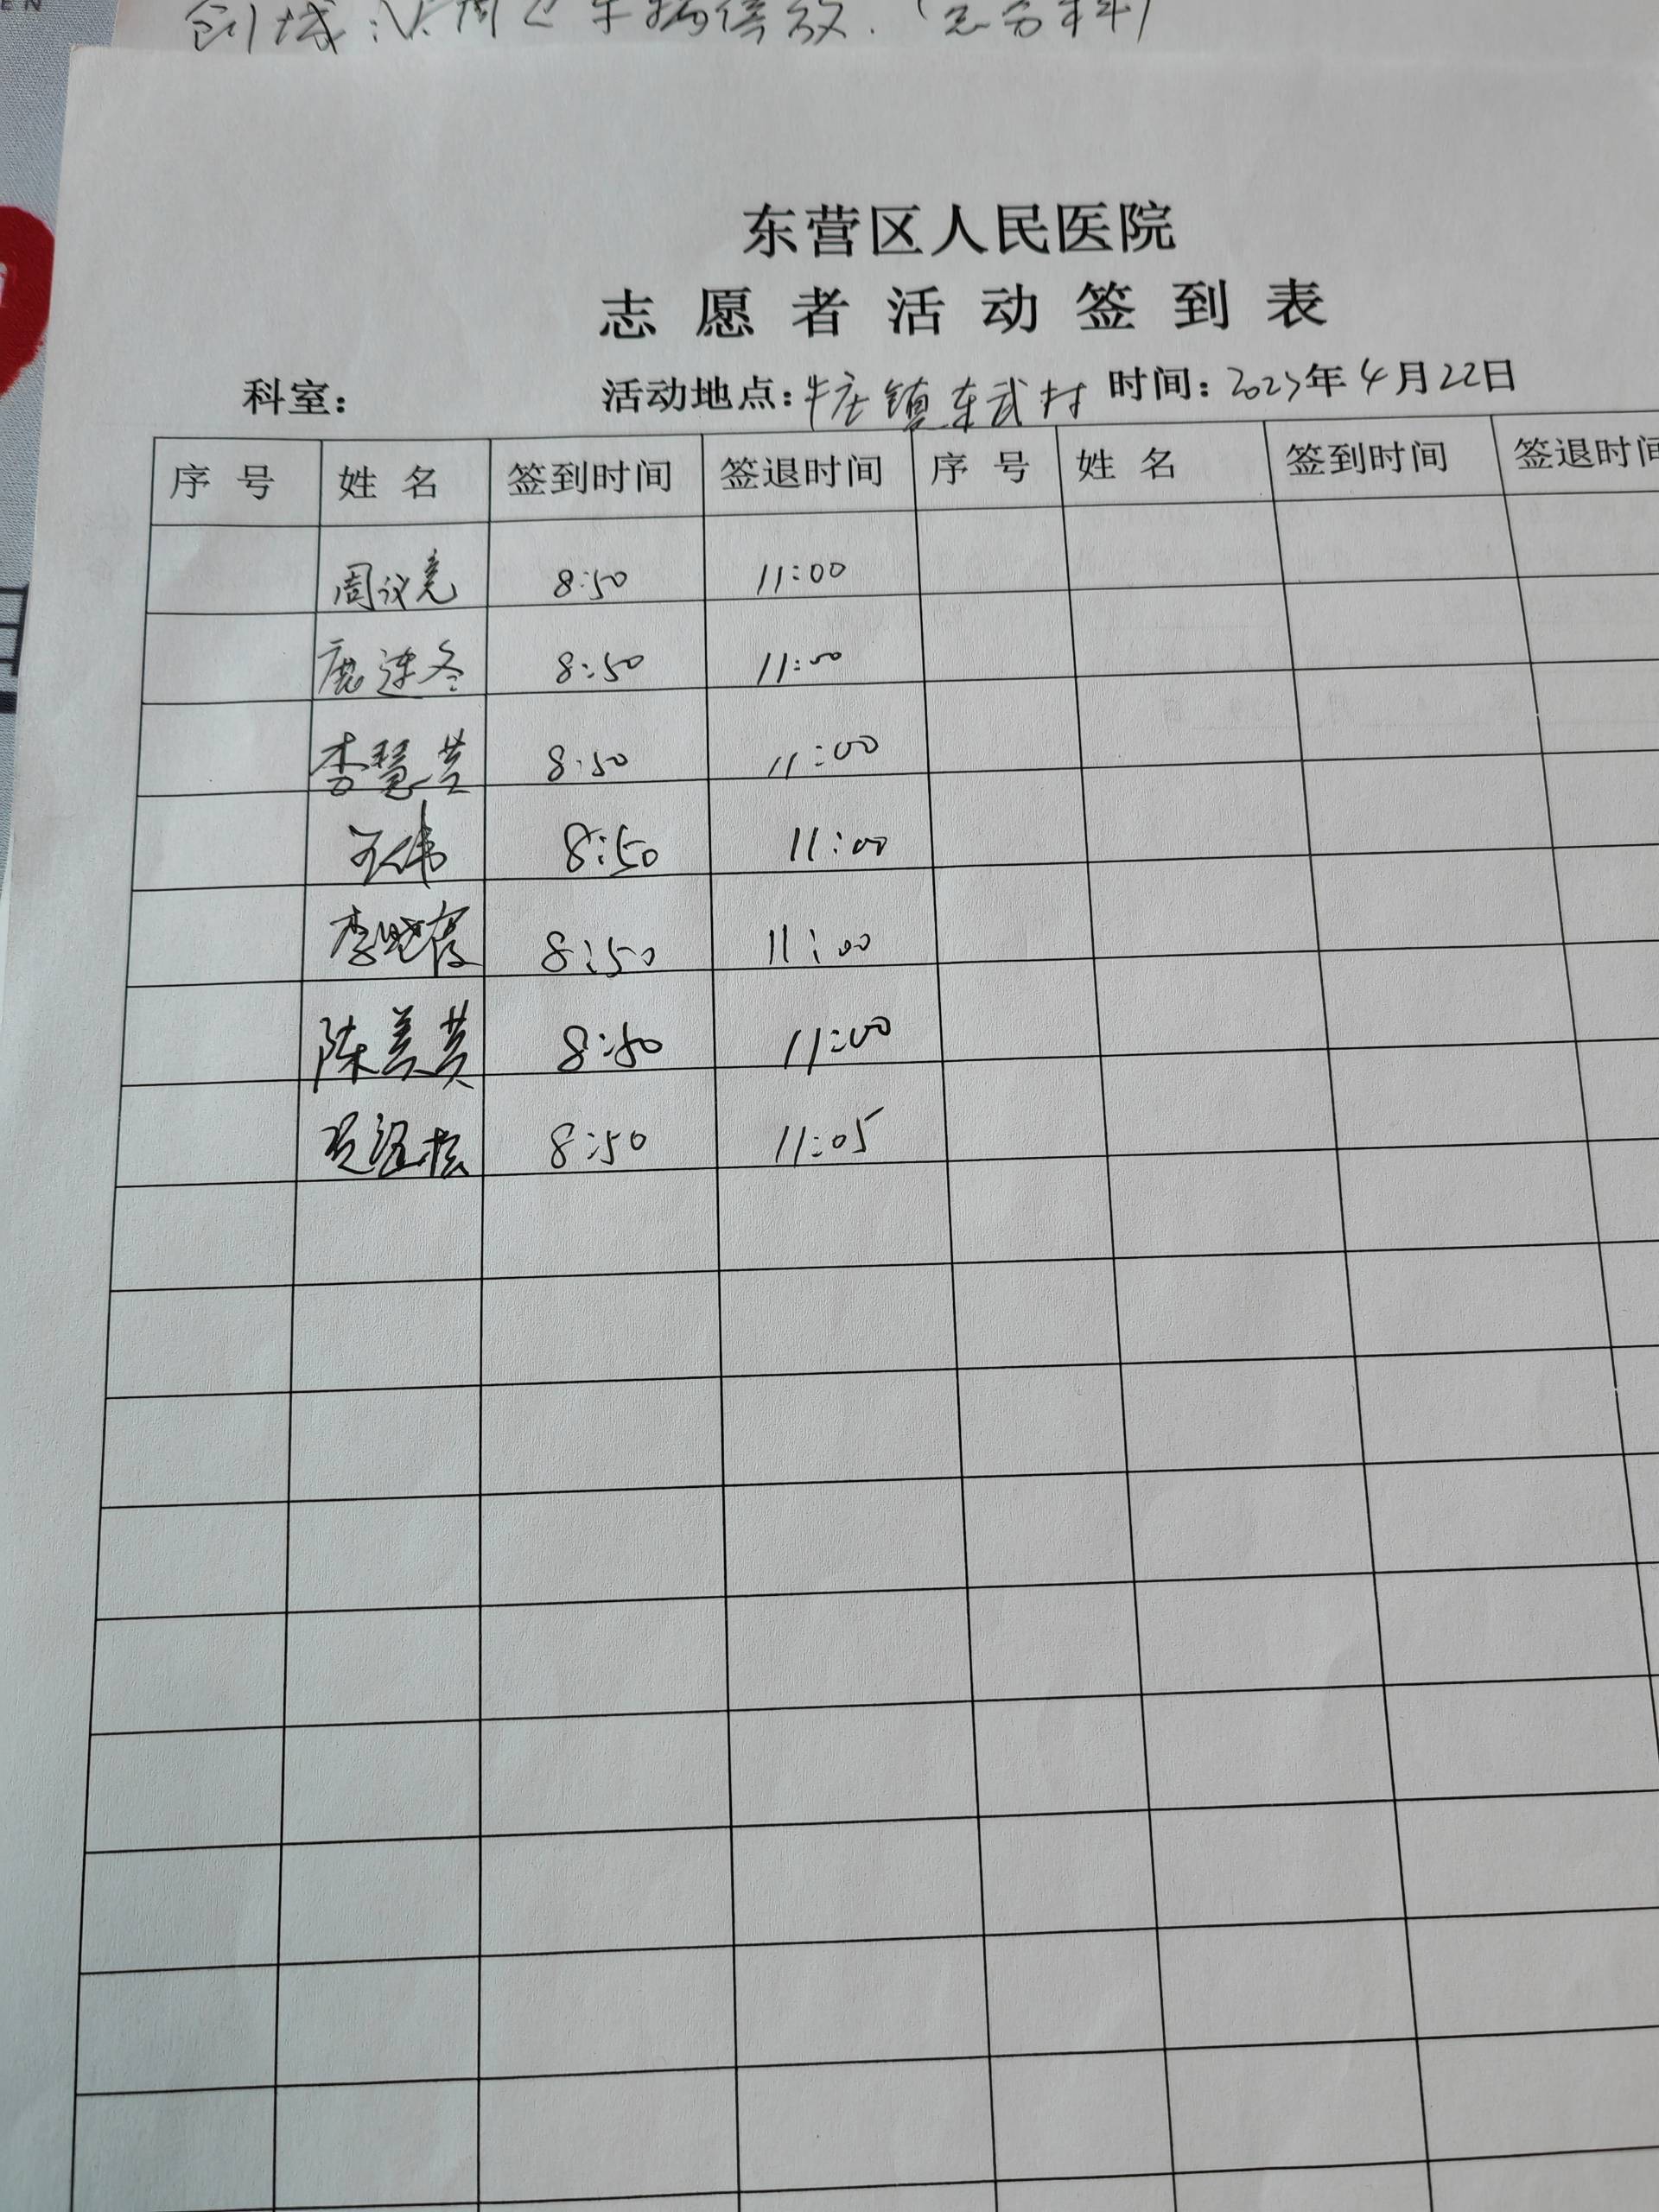 东营区人民医院
志愿者活动签到表
科室: 活动地点:牛庄镇东武村 时间:2023年4月22日
序号 姓名 签到时间 签退时间 序号 姓名 签到时间 签退时间
周议亮 8:50 11:00
鹿连冬 8:50 11:00
李慧芸 8:50 11:00
王伟 8:50 11:00
李晓霞 8:50 11:00
陈美英 8:50 11:00
8:50 11:05